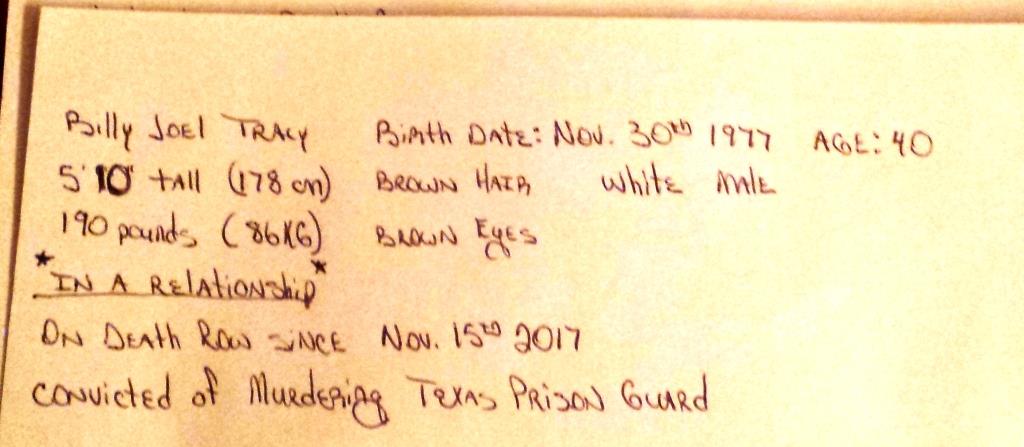 Billy Joel Tracy Birth Date: Nov. 30th 1977 Age: 40
5'10" tall (178 cm) Brown Hair White Male
190 pounds (86KG) Brown Eyes
*In a Relationship*
On Death Row since Nov. 15th 2017
convicted of Murdering Texas Prison Guard